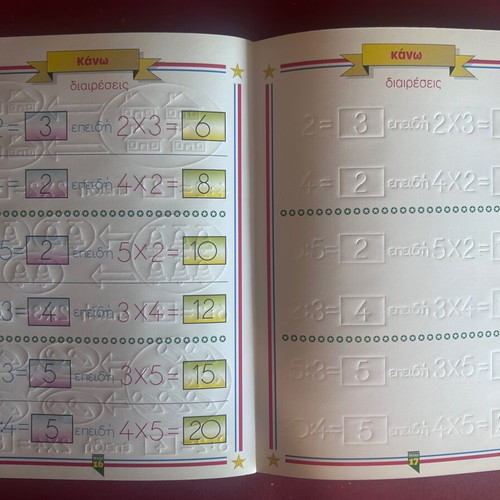 κάνω
διαιρέσεις
= 3 επειδή 2X3= 6
= 2 επειδή 4X2= 8
5= 2 επειδή 5X2= 10
3= 4 επειδή 3X4= 12
3= 5 επειδή 3X5= 15
:4= 5 επειδή 4X5= 20
16
κάνω
διαιρέσεις
2= 3 επειδή 2X3=
4= 2 επειδή 4X2=
:5= 2 επειδή 5X2=
:3= 4 επειδή 3X4=
5:3= 5 επειδή 3X5=
0:4= 5 επειδή 4X5=
17